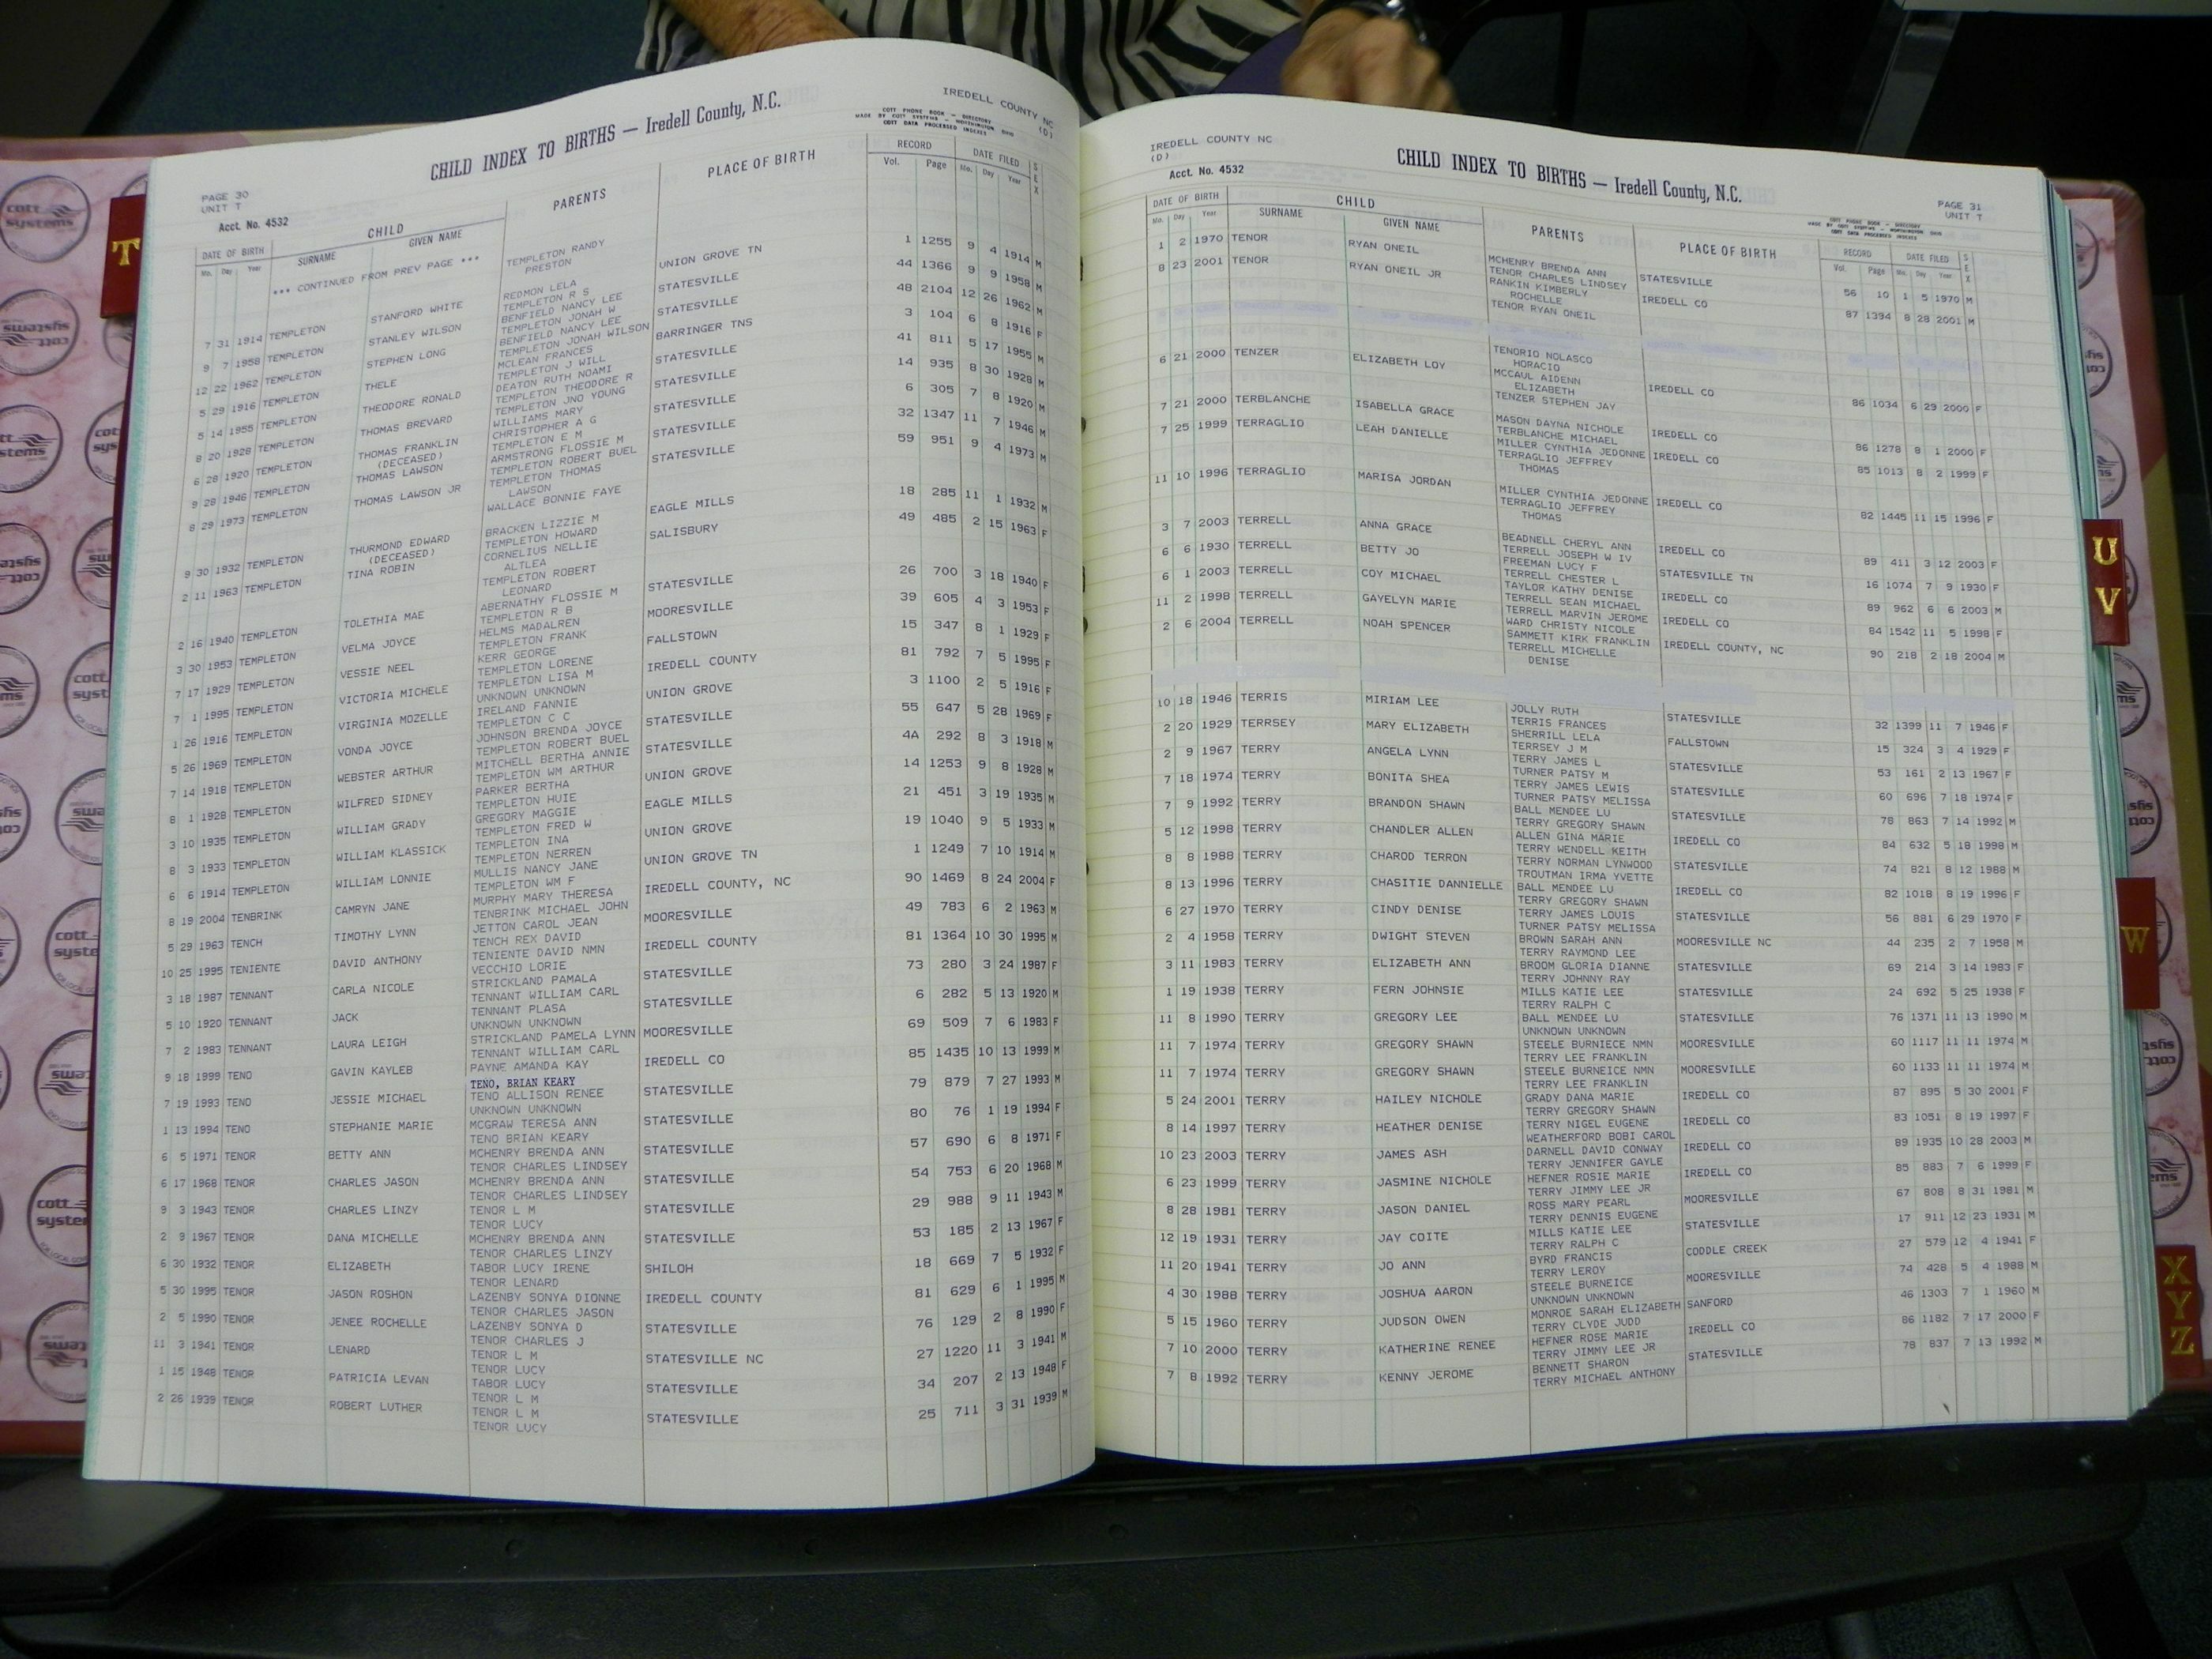 CHILD INDEX TO BIRTHS — Iredell County, N.C.
IREDELL COUNTY NC
(D)
COTT PHONE BOOK — DIRECTORY
MADE BY COTT SYSTEMS — WORTHINGTON OHIO
COTT DATA PROCESSED INDEXES
PAGE 30
UNIT T
Acct. No. 4532
DATE OF BIRTH CHILD PARENTS PLACE OF BIRTH RECORD DATE FILED SEX
Mo. Day Year SURNAME GIVEN NAME Vol. Page Mo. Day Year
*** CONTINUED FROM PREV PAGE ***
TEMPLETON RANDY
PRESTON
7 31 1914 TEMPLETON STANFORD WHITE REDMON LELA UNION GROVE TN 1 1255 9 4 1914 M
TEMPLETON R S
9 7 1958 TEMPLETON STANLEY WILSON BENFIELD NANCY LEE STATESVILLE 44 1366 9 9 1958 M
TEMPLETON JONAH W
12 22 1962 TEMPLETON STEPHEN LONG BENFIELD NANCY LEE STATESVILLE 48 2104 12 26 1962 M
TEMPLETON JONAH WILSON
5 29 1916 TEMPLETON THELE MCLEAN FRANCES BARRINGER TNS 3 104 6 8 1916 F
TEMPLETON J WILL
5 14 1955 TEMPLETON THEODORE RONALD DEATON RUTH NOAMI STATESVILLE 41 811 5 17 1955 M
TEMPLETON THEODORE R
8 20 1928 TEMPLETON THOMAS BREVARD TEMPLETON JNO YOUNG STATESVILLE 14 935 8 30 1928 M
WILLIAMS MARY
6 28 1920 TEMPLETON THOMAS FRANKLIN CHRISTOPHER A G STATESVILLE 6 305 7 8 1920 M
(DECEASED) TEMPLETON E M
9 28 1946 TEMPLETON THOMAS LAWSON ARMSTRONG FLOSSIE M STATESVILLE 32 1347 11 7 1946 M
TEMPLETON ROBERT BUEL
8 29 1973 TEMPLETON THOMAS LAWSON JR TEMPLETON THOMAS STATESVILLE 59 951 9 4 1973 M
LAWSON
WALLACE BONNIE FAYE
9 30 1932 TEMPLETON THURMOND EDWARD BRACKEN LIZZIE M EAGLE MILLS 18 285 11 1 1932 M
(DECEASED) TEMPLETON HOWARD
2 11 1963 TEMPLETON TINA ROBIN CORNELIUS NELLIE SALISBURY 49 485 2 15 1963 F
ALTLEA
TEMPLETON ROBERT
LEONARD
2 16 1940 TEMPLETON TOLETHIA MAE ABERNATHY FLOSSIE M STATESVILLE 26 700 3 18 1940 F
TEMPLETON R B
3 30 1953 TEMPLETON VELMA JOYCE HELMS MADALREN MOORESVILLE 39 605 4 3 1953 F
TEMPLETON FRANK
7 17 1929 TEMPLETON VESSIE NEEL KERR GEORGE FALLSTOWN 15 347 8 1 1929 F
TEMPLETON LORENE
7 1 1995 TEMPLETON VICTORIA MICHELE TEMPLETON LISA M IREDELL COUNTY 81 792 7 5 1995 F
UNKNOWN UNKNOWN
1 26 1916 TEMPLETON VIRGINIA MOZELLE IRELAND FANNIE UNION GROVE 3 1100 2 5 1916 F
TEMPLETON C C
5 26 1969 TEMPLETON VONDA JOYCE JOHNSON BRENDA JOYCE STATESVILLE 55 647 5 28 1969 F
TEMPLETON ROBERT BUEL
7 14 1918 TEMPLETON WEBSTER ARTHUR MITCHELL BERTHA ANNIE STATESVILLE 4A 292 8 3 1918 M
TEMPLETON WM ARTHUR
8 1 1928 TEMPLETON WILFRED SIDNEY PARKER BERTHA UNION GROVE 14 1253 9 8 1928 M
TEMPLETON HUIE
3 10 1935 TEMPLETON WILLIAM GRADY GREGORY MAGGIE EAGLE MILLS 21 451 3 19 1935 M
TEMPLETON FRED W
8 3 1933 TEMPLETON WILLIAM KLASSICK TEMPLETON INA UNION GROVE 19 1040 9 5 1933 M
TEMPLETON NERREN
6 6 1914 TEMPLETON WILLIAM LONNIE MULLIS NANCY JANE UNION GROVE TN 1 1249 7 10 1914 M
TEMPLETON WM F
8 19 2004 TENBRINK CAMRYN JANE MURPHY MARY THERESA IREDELL COUNTY, NC 90 1469 8 24 2004 F
TENBRINK MICHAEL JOHN
5 29 1963 TENCH TIMOTHY LYNN JETTON CAROL JEAN MOORESVILLE 49 783 6 2 1963 M
TENCH REX DAVID
10 25 1995 TENIENTE DAVID ANTHONY TENIENTE DAVID NMN IREDELL COUNTY 81 1364 10 30 1995 M
VECCHIO LORIE
3 18 1987 TENNANT CARLA NICOLE STRICKLAND PAMALA STATESVILLE 73 280 3 24 1987 F
TENNANT WILLIAM CARL
5 10 1920 TENNANT JACK TENNANT PLASA STATESVILLE 6 282 5 13 1920 M
UNKNOWN UNKNOWN
7 2 1983 TENNANT LAURA LEIGH STRICKLAND PAMELA LYNN MOORESVILLE 69 509 7 6 1983 F
TENNANT WILLIAM CARL
9 18 1999 TENO GAVIN KAYLEB PAYNE AMANDA KAY IREDELL CO 85 1435 10 13 1999 M
TENO, BRIAN KEARY
7 19 1993 TENO JESSIE MICHAEL TENO ALLISON RENEE STATESVILLE 79 879 7 27 1993 M
UNKNOWN UNKNOWN
1 13 1994 TENO STEPHANIE MARIE MCGRAW TERESA ANN STATESVILLE 80 76 1 19 1994 F
TENO BRIAN KEARY
6 5 1971 TENOR BETTY ANN MCHENRY BRENDA ANN STATESVILLE 57 690 6 8 1971 F
TENOR CHARLES LINDSEY
6 17 1968 TENOR CHARLES JASON MCHENRY BRENDA ANN STATESVILLE 54 753 6 20 1968 M
TENOR CHARLES LINDSEY
9 3 1943 TENOR CHARLES LINZY TENOR L M STATESVILLE 29 988 9 11 1943 M
TENOR LUCY
2 9 1967 TENOR DANA MICHELLE MCHENRY BRENDA ANN STATESVILLE 53 185 2 13 1967 F
TENOR CHARLES LINZY
6 30 1932 TENOR ELIZABETH TABOR LUCY IRENE SHILOH 18 669 7 5 1932 F
TENOR LENARD
5 30 1995 TENOR JASON ROSHON LAZENBY SONYA DIONNE IREDELL COUNTY 81 629 6 1 1995 M
TENOR CHARLES JASON
2 5 1990 TENOR JENEE ROCHELLE LAZENBY SONYA D STATESVILLE 76 129 2 8 1990 F
TENOR CHARLES J
11 3 1941 TENOR LENARD TENOR L M STATESVILLE NC 27 1220 11 3 1941 M
TENOR LUCY
1 15 1948 TENOR PATRICIA LEVAN TABOR LUCY STATESVILLE 34 207 2 13 1948 F
TENOR L M
2 26 1939 TENOR ROBERT LUTHER TENOR L M STATESVILLE 25 711 3 31 1939 M
TENOR LUCY
IREDELL COUNTY NC
(D)
Acct. No. 4532
CHILD INDEX TO BIRTHS — Iredell County, N.C.
PAGE 31
UNIT T
COTT PHONE BOOK — DIRECTORY
MADE BY COTT SYSTEMS — WORTHINGTON OHIO
COTT DATA PROCESSED INDEXES
DATE OF BIRTH CHILD PARENTS PLACE OF BIRTH RECORD DATE FILED SEX
Mo. Day Year SURNAME GIVEN NAME Vol. Page Mo. Day Year
1 2 1970 TENOR RYAN ONEIL MCHENRY BRENDA ANN STATESVILLE 56 10 1 5 1970 M
TENOR CHARLES LINDSEY
8 23 2001 TENOR RYAN ONEIL JR RANKIN KIMBERLY IREDELL CO 87 1394 8 28 2001 M
ROCHELLE
TENOR RYAN ONEIL
TENORIO NOLASCO
HORACIO
6 21 2000 TENZER ELIZABETH LOY MCCAUL AIDENN IREDELL CO 86 1034 6 29 2000 F
ELIZABETH
TENZER STEPHEN JAY
7 21 2000 TERBLANCHE ISABELLA GRACE MASON DAYNA NICHOLE IREDELL CO 86 1278 8 1 2000 F
TERBLANCHE MICHAEL
7 25 1999 TERRAGLIO LEAH DANIELLE MILLER CYNTHIA JEDONNE IREDELL CO 85 1013 8 2 1999 F
TERRAGLIO JEFFREY
THOMAS
11 10 1996 TERRAGLIO MARISA JORDAN MILLER CYNTHIA JEDONNE IREDELL CO 82 1445 11 15 1996 F
TERRAGLIO JEFFREY
THOMAS
3 7 2003 TERRELL ANNA GRACE BEADNELL CHERYL ANN IREDELL CO 89 411 3 12 2003 F
TERRELL JOSEPH W IV
6 6 1930 TERRELL BETTY JO FREEMAN LUCY F STATESVILLE TN 16 1074 7 9 1930 F
TERRELL CHESTER L
6 1 2003 TERRELL COY MICHAEL TAYLOR KATHY DENISE IREDELL CO 89 962 6 6 2003 M
TERRELL SEAN MICHAEL
11 2 1998 TERRELL GAYELYN MARIE TERRELL MARVIN JEROME IREDELL CO 84 1542 11 5 1998 F
WARD CHRISTY NICOLE
2 6 2004 TERRELL NOAH SPENCER SAMMETT KIRK FRANKLIN IREDELL COUNTY, NC 90 218 2 18 2004 M
TERRELL MICHELLE
DENISE
10 18 1946 TERRIS MIRIAM LEE JOLLY RUTH STATESVILLE 32 1399 11 7 1946 F
TERRIS FRANCES
2 20 1929 TERRSEY MARY ELIZABETH SHERRILL LELA FALLSTOWN 15 324 3 4 1929 F
TERRSEY J M
2 9 1967 TERRY ANGELA LYNN TERRY JAMES L STATESVILLE 53 161 2 13 1967 F
TURNER PATSY M
7 18 1974 TERRY BONITA SHEA TERRY JAMES LEWIS STATESVILLE 60 696 7 18 1974 F
TURNER PATSY MELISSA
7 9 1992 TERRY BRANDON SHAWN BALL MENDEE LU STATESVILLE 78 863 7 14 1992 M
TERRY GREGORY SHAWN
5 12 1998 TERRY CHANDLER ALLEN ALLEN GINA MARIE IREDELL CO 84 632 5 18 1998 M
TERRY WENDELL KEITH
8 8 1988 TERRY CHAROD TERRON TERRY NORMAN LYNWOOD STATESVILLE 74 821 8 12 1988 M
TROUTMAN IRMA YVETTE
8 13 1996 TERRY CHASITIE DANNIELLE BALL MENDEE LU IREDELL CO 82 1018 8 19 1996 F
TERRY GREGORY SHAWN
6 27 1970 TERRY CINDY DENISE TERRY JAMES LOUIS STATESVILLE 56 881 6 29 1970 F
TURNER PATSY MELISSA
2 4 1958 TERRY DWIGHT STEVEN BROWN SARAH ANN MOORESVILLE NC 44 235 2 7 1958 M
TERRY RAYMOND LEE
3 11 1983 TERRY ELIZABETH ANN BROOM GLORIA DIANNE STATESVILLE 69 214 3 14 1983 F
TERRY JOHNNY RAY
1 19 1938 TERRY FERN JOHNSIE MILLS KATIE LEE STATESVILLE 24 692 5 25 1938 F
TERRY RALPH C
11 8 1990 TERRY GREGORY LEE BALL MENDEE LU STATESVILLE 76 1371 11 13 1990 M
UNKNOWN UNKNOWN
11 7 1974 TERRY GREGORY SHAWN STEELE BURNIECE NMN MOORESVILLE 60 1117 11 11 1974 M
TERRY LEE FRANKLIN
11 7 1974 TERRY GREGORY SHAWN STEELE BURNEICE NMN MOORESVILLE 60 1133 11 11 1974 M
TERRY LEE FRANKLIN
5 24 2001 TERRY HAILEY NICHOLE GRADY DANA MARIE IREDELL CO 87 895 5 30 2001 F
TERRY GREGORY SHAWN
8 14 1997 TERRY HEATHER DENISE TERRY NIGEL EUGENE IREDELL CO 83 1051 8 19 1997 F
WEATHERFORD BOBI CAROL
10 23 2003 TERRY JAMES ASH DARNELL DAVID CONWAY IREDELL CO 89 1935 10 28 2003 M
TERRY JENNIFER GAYLE
6 23 1999 TERRY JASMINE NICHOLE HEFNER ROSIE MARIE IREDELL CO 85 883 7 6 1999 F
TERRY JIMMY LEE JR
8 28 1981 TERRY JASON DANIEL ROSS MARY PEARL MOORESVILLE 67 808 8 31 1981 M
TERRY DENNIS EUGENE
12 19 1931 TERRY JAY COITE MILLS KATIE LEE STATESVILLE 17 911 12 23 1931 M
TERRY RALPH C
11 20 1941 TERRY JO ANN BYRD FRANCIS CODDLE CREEK 27 579 12 4 1941 F
TERRY LEROY
4 30 1988 TERRY JOSHUA AARON STEELE BURNEICE MOORESVILLE 74 428 5 4 1988 M
UNKNOWN UNKNOWN
5 15 1960 TERRY JUDSON OWEN MONROE SARAH ELIZABETH SANFORD 46 1303 7 1 1960 M
TERRY CLYDE JUDD
7 10 2000 TERRY KATHERINE RENEE HEFNER ROSE MARIE IREDELL CO 86 1182 7 17 2000 F
TERRY JIMMY LEE JR
7 8 1992 TERRY KENNY JEROME BENNETT SHARON STATESVILLE 78 837 7 13 1992 M
TERRY MICHAEL ANTHONY
T
U
V
W
X
Y
Z
cott systems